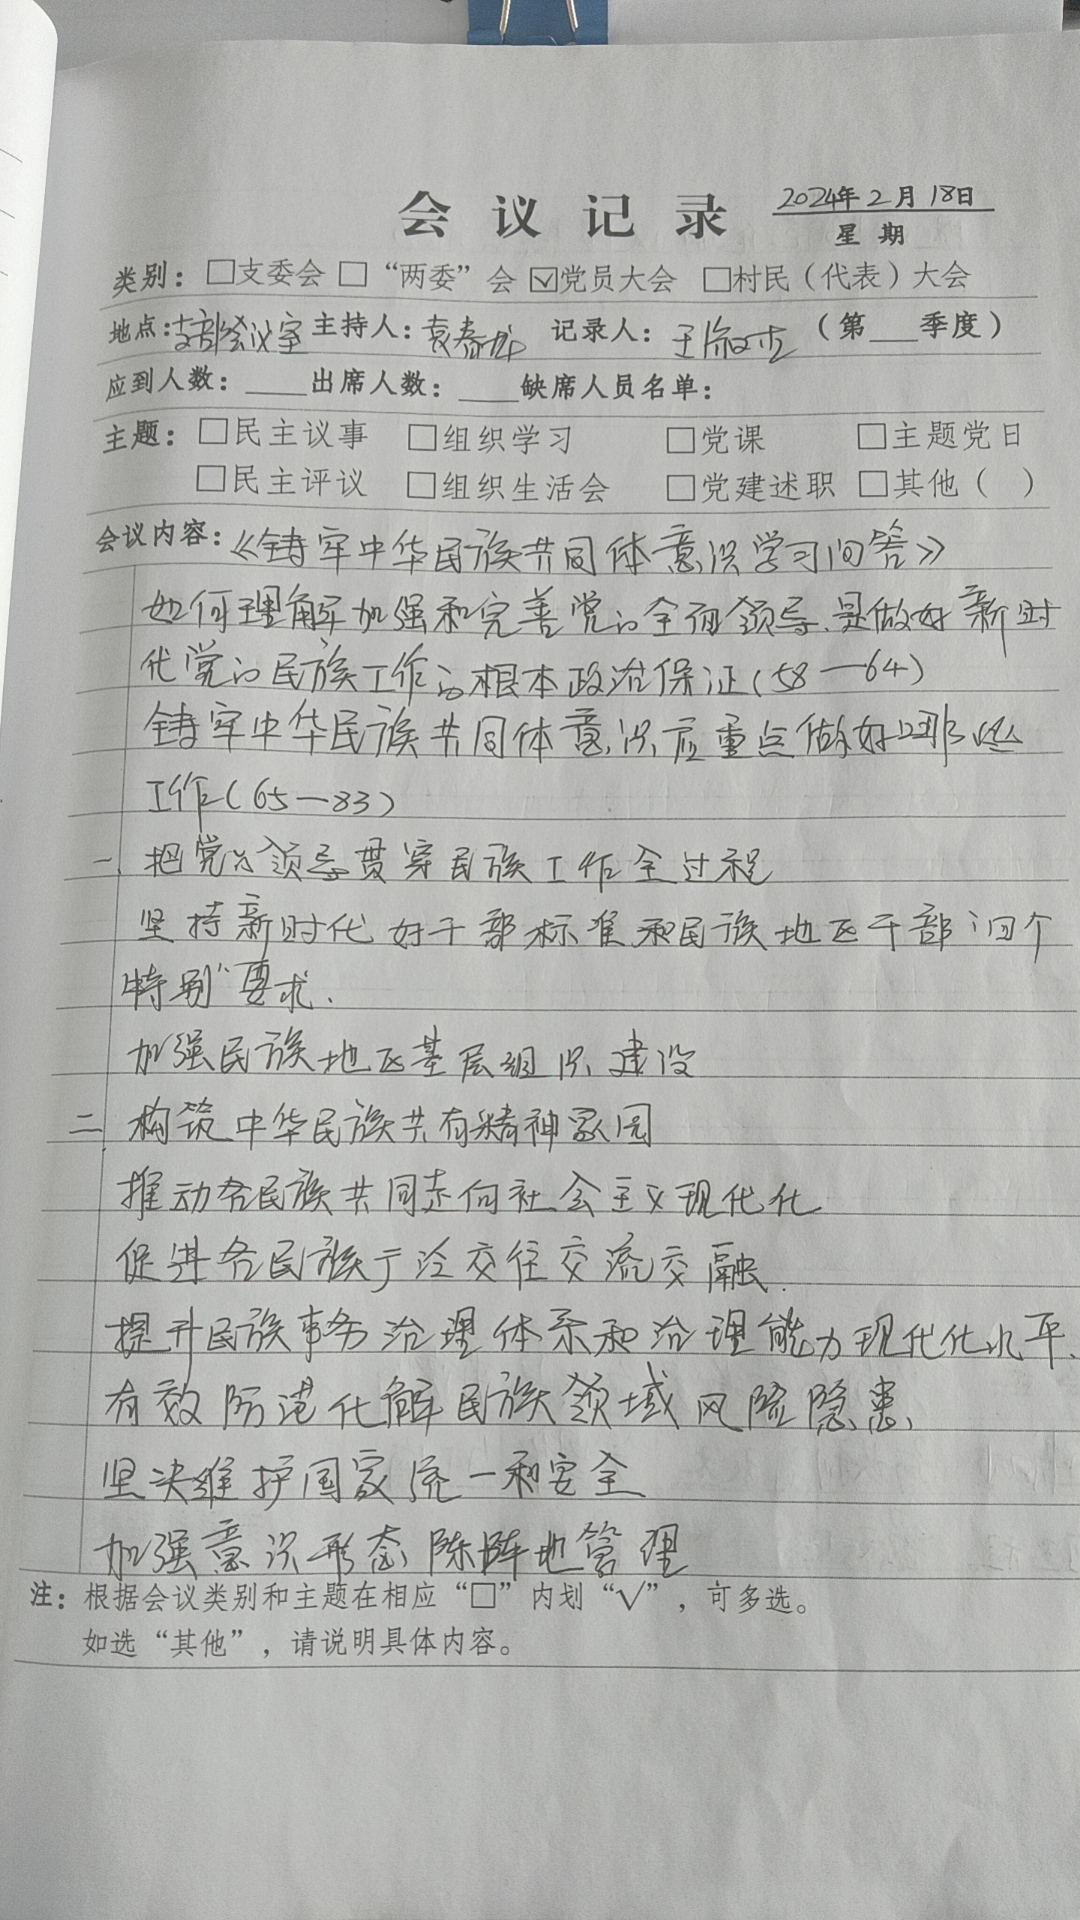 会议记录 2024年2月18日
星期
类别：□支委会 □“两委”会 ☑党员大会 □村民（代表）大会
地点：支部会议室 主持人：袁春 记录人：王 （第___季度）
应到人数：____出席人数：____缺席人员名单：
主题：□民主议事 □组织学习 □党课 □主题党日
□民主评议 □组织生活会 □党建述职 □其他（ ）
会议内容：《铸牢中华民族共同体意识学习问答》
如何理解加强和完善党的全面领导、是做好新时
代党的民族工作的根本政治保证(58—64)
铸牢中华民族共同体意识应重点做好哪些
工作(65—83)
一、把党的领导贯穿民族工作全过程
坚持新时代好干部标准和民族地区干部“四个
特别”要求.
加强民族地区基层组织建设
二、构筑中华民族共有精神家园
推动各民族共同走向社会主义现代化
促进各民族广泛交往交流交融.
提升民族事务治理体系和治理能力现代化水平、
有效防范化解民族领域风险隐患、
坚决维护国家统一和安全
加强意识形态 阵地管理
注：根据会议类别和主题在相应“□”内划“√”，可多选。
如选“其他”，请说明具体内容。